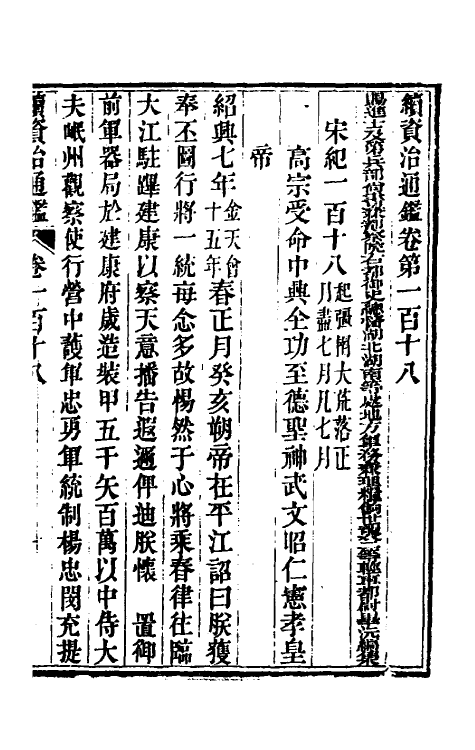 續資治通鑑卷第一百十八
賜進士及第兵部尚書兼都察院右都御史總督湖北湖南等處地方軍務兼理糧餉世襲二等輕車都尉畢沅編集
宋紀一百十八起彊圉大荒落正月盡七月凡七月
高宗受命中興全功至德聖神武文昭仁憲孝皇
帝
紹興七年金天會十五年春正月癸亥朔帝在平江詔曰朕獲
奉丕圖行將一統每念多故惕然于心將乘春律往臨
大江駐蹕建康以察天意播告遐邇俾迪朕懷　置御
前軍器局於建康府歲造裝甲五千矢百萬以中侍大
夫岷州觀察使行營中護軍忠勇軍統制楊忠閔充提
續資治通鑑
卷一百十八
一